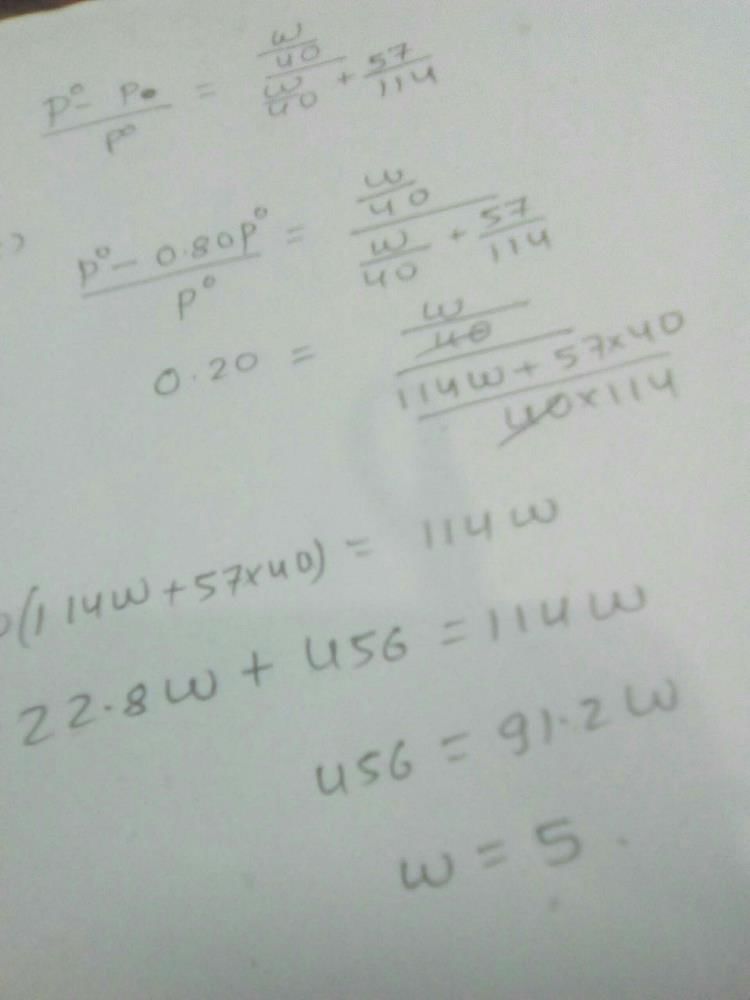 (p° - p)/p° = (w/40)/(w/40 + 57/114)
(p° - 0.80p°)/p° = (w/40)/(w/40 + 57/114)
0.20 = (w/40)/((114w + 57×40)/(40×114))
(114w + 57×40) = 114w
22.8w + 456 = 114w
456 = 91.2w
w = 5.